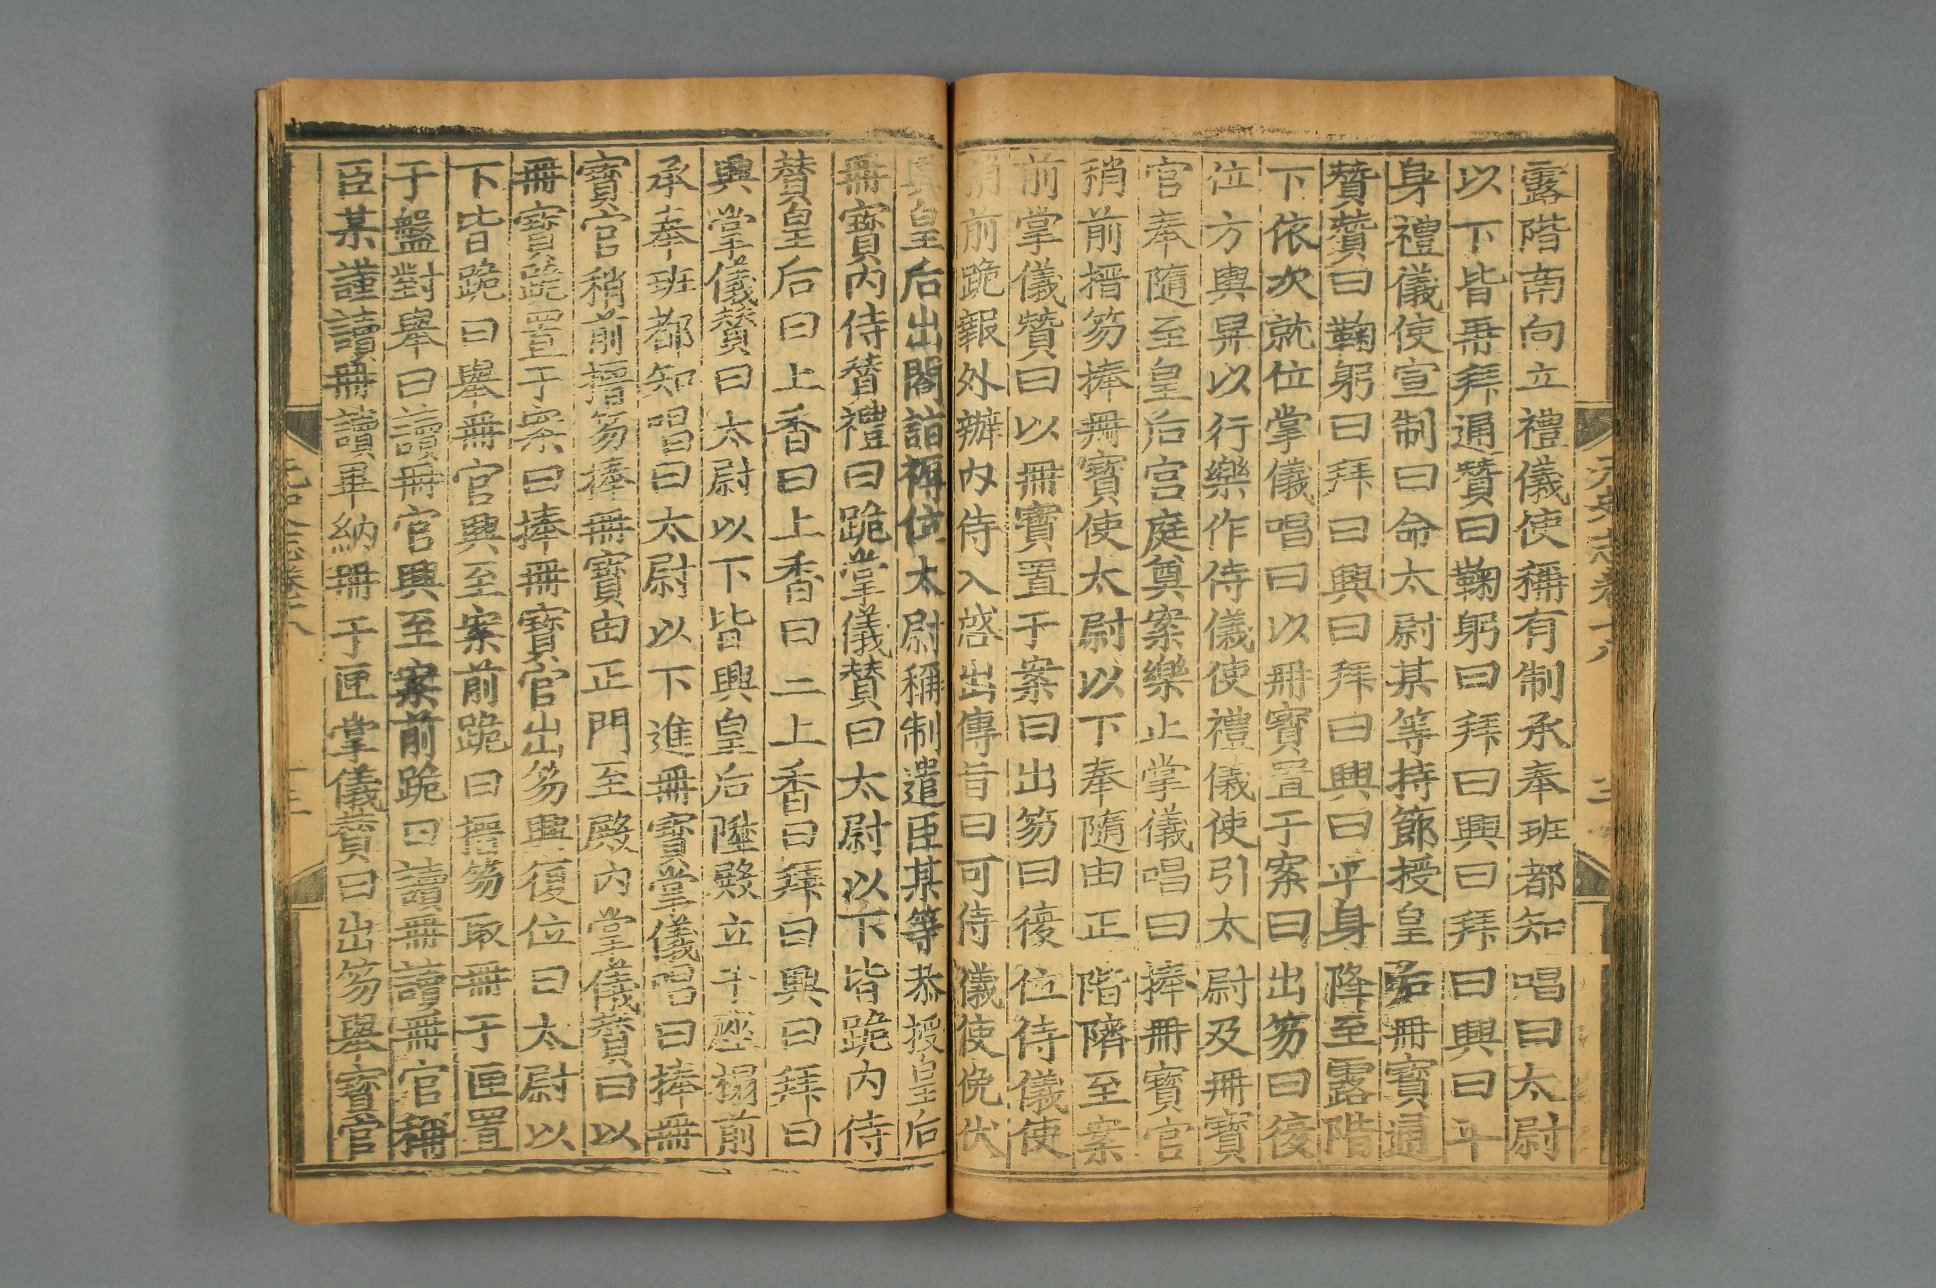 露階南向立禮儀使稱有制承奉班都知唱曰太尉
以下皆再拜通贊曰鞠躬曰拜曰興曰拜曰興曰平
身禮儀使宣制曰命太尉某等持節授皇后冊寶通
贊贊曰鞠躬曰拜曰興曰拜曰興曰平身降至露階
下依次就位掌儀唱曰以冊寶置于案曰出笏曰復
位方輿舁以行樂作侍儀使禮儀使引太尉及冊寶
官奉隨至皇后宮庭奠案樂止掌儀唱曰捧冊寶官
稍前搢笏捧冊寶使太尉以下奉隨由正階隮至案
前掌儀贊曰以冊寶置于案曰出笏曰復位侍儀使
稍前跪報外辦內侍入啓出傳旨曰可侍儀使俛伏
興皇后出閤詣褥位太尉稱制遣臣某等恭授皇后
冊寶內侍贊禮曰跪掌儀贊曰太尉以下皆跪內侍
贊皇后曰上香曰上香曰二上香曰拜曰興曰拜曰
興掌儀贊曰太尉以下皆興皇后陞殿立于座榻前
承奉班都知唱曰太尉以下進冊寶掌儀唱曰捧冊
寶官稍前搢笏捧冊寶由正門至殿內掌儀贊曰以
冊寶跪置于案曰捧冊寶官出笏興復位曰太尉以
下皆跪曰舉冊官興至案前跪曰搢笏取冊于匣置
于盤對舉曰讀冊官興至案前跪曰讀冊讀冊官稱
臣某謹讀冊讀畢納冊于匣掌儀贊曰出笏舉寶官